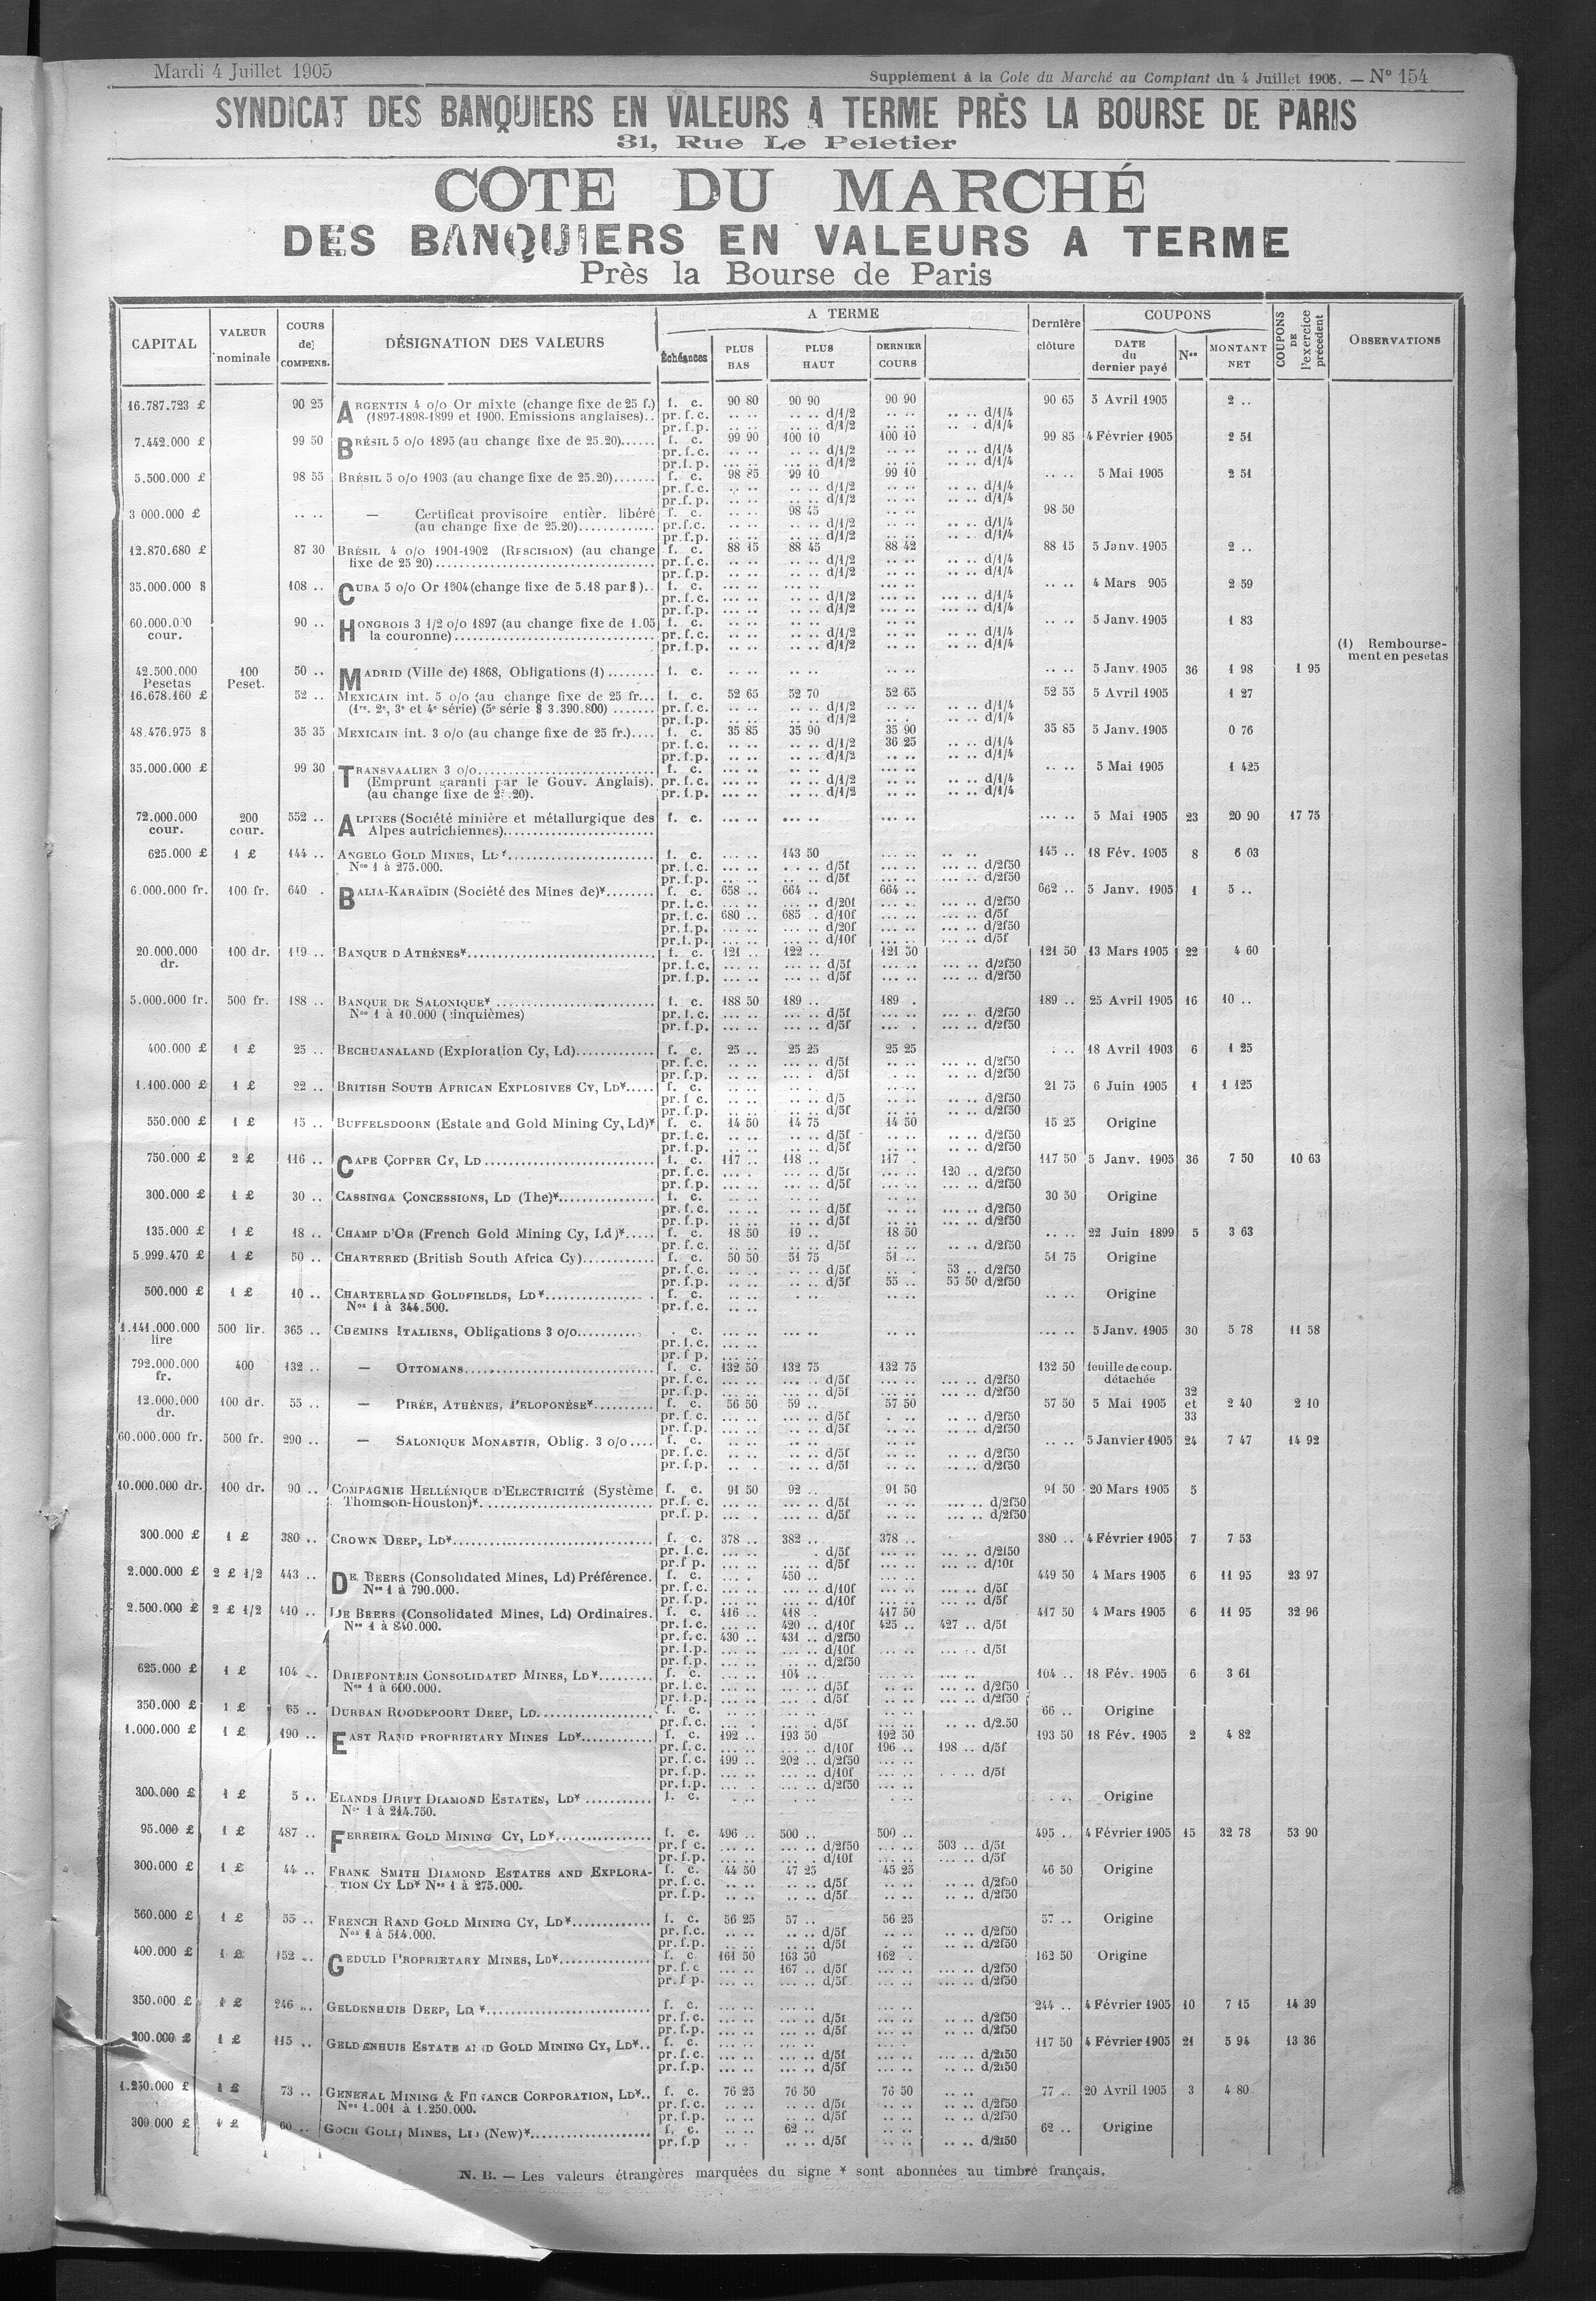 Mardi 4 Juillet 1905
Supplément à la Cote du Marché au Comptant du 4 Juillet 1905. — N° 154
SYNDICAT DES BANQUIERS EN VALEURS A TERME PRÈS LA BOURSE DE PARIS
31, Rue Le Peletier
COTE DU MARCHÉ
DES BANQUIERS EN VALEURS A TERME
Près la Bourse de Paris
CAPITAL VALEUR nominale COURS de COMPENS. DÉSIGNATION DES VALEURS Échéances A TERME PLUS BAS PLUS HAUT DERNIER COURS Dernière clôture COUPONS DATE du dernier payé Nos MONTANT NET COUPONS DE l'exercice précédent OBSERVATIONS
16.787.723 £ 90 25 ARGENTIN 4 o/o Or mixte (change fixe de 25 f.) f. c. 90 80 90 90 90 90 90 65 5 Avril 1905 2 ..
(1897-1898-1899 et 1900. Emissions anglaises).. pr.f.c. d/1/2 d/1/4
pr.f.p. d/1/2 d/1/4
7.442.000 £ 99 50 BRÉSIL 5 o/o 1895 (au change fixe de 25.20)...... f. c. 99 90 100 10 100 10 99 85 4 Février 1905 2 51
pr.f.c. d/1/2 d/1/4
pr.f.p. d/1/2 d/1/4
5.500.000 £ 98 55 BRÉSIL 5 o/o 1903 (au change fixe de 25.20)....... f. c. 98 85 99 10 99 10 .. .. 5 Mai 1905 2 51
pr.f.c. d/1/2 d/1/4
pr.f.p. d/1/2 d/1/4
3 000.000 £ .. .. — Certificat provisoire entièr. libéré f. c. 98 45 98 50
(au change fixe de 25.20)............. pr.f.c. d/1/2 d/1/4
pr.f.p. d/1/2 d/1/4
12.870.680 £ 87 30 BRÉSIL 4 o/o 1901-1902 (RESCISION) (au change f. c. 88 15 88 45 88 42 88 15 5 Janv. 1905 2 ..
fixe de 25 20)................................ pr.f.c. d/1/2 d/1/4
pr.f.p. d/1/2 d/1/4
35.000.000 $ 108 .. CUBA 5 o/o Or 1904 (change fixe de 5.18 par $).. f. c. .. .. 4 Mars 905 2 59
pr.f.c. d/1/2 d/1/4
pr.f.p. d/1/2 d/1/4
60.000.000 cour. 90 .. HONGROIS 3 1/2 o/o 1897 (au change fixe de 1.05 f. c. .. .. 5 Janv. 1905 1 83
la couronne)............................. pr.f.c. d/1/2 d/1/4
pr.f.p. d/1/2 d/1/4
(1) Remboursement en pesetas
42.500.000 Pesetas 100 Peset. 50 .. MADRID (Ville de) 1868, Obligations (1)........ f. c. .. .. 5 Janv. 1905 36 1 98 1 95
16.678.160 £ 52 .. MEXICAIN int. 5 o/o (au change fixe de 25 fr... f. c. 52 65 52 70 52 65 52 55 5 Avril 1905 1 27
(1re, 2e, 3e et 4e série) (5e série $ 3.390.800)....... pr.f.c. d/1/2 d/1/4
pr.f.p. d/1/2 d/1/4
48.476.975 $ 35 35 MEXICAIN int. 3 o/o (au change fixe de 25 fr.).... f. c. 35 85 35 90 35 90 35 85 5 Janv. 1905 0 76
pr.f.c. d/1/2 36 25 d/1/4
pr.f.p. d/1/2 d/1/4
35.000.000 £ 99 30 TRANSVAALIEN 3 o/o............................. f. c. .. .. 5 Mai 1905 1 425
(Emprunt garanti par le Gouv. Anglais). pr.f.c. d/1/2 d/1/4
(au change fixe de 25.20). pr.f.p. d/1/2 d/1/4
72.000.000 cour. 200 cour. 552 .. ALPINES (Société minière et métallurgique des f. c. .. .. 5 Mai 1905 23 20 90 17 75
Alpes autrichiennes).........................
625.000 £ 1 £ 144 .. ANGELO GOLD MINES, Ld*........................ f. c. 143 50 145 .. 18 Fév. 1905 8 6 03
Nos 1 à 275.000. pr.f.c. d/5f d/2f50
pr.f.p. d/5f d/2f50
6.000.000 fr. 100 fr. 640 . BALIA-KARAÏDIN (Société des Mines de)*........ f. c. 658 .. 664 .. 664 .. 662 .. 5 Janv. 1905 1 5 ..
pr.f.c. d/20f d/2f50
pr.f.c. 680 .. 685 .. d/10f d/5f
pr.f.p. d/20f d/2f50
pr.f.p. d/10f d/5f
20.000.000 dr. 100 dr. 119 .. BANQUE D'ATHÈNES*............................. f. c. 121 .. 122 .. 121 50 121 50 13 Mars 1905 22 4 60
pr.f.c. d/5f d/2f50
pr.f.p. d/5f d/2f50
5.000.000 fr. 500 fr. 188 .. BANQUE DE SALONIQUE*......................... f. c. 188 50 189 .. 189 . 189 .. 25 Avril 1905 16 10 ..
Nos 1 à 10.000 (cinquièmes) pr.f.c. d/5f d/2f50
pr.f.p. d/5f d/2f50
400.000 £ 1 £ 25 .. BECHUANALAND (Exploration Cy, Ld)............ f. c. 25 .. 25 25 25 25 . .. 18 Avril 1903 6 1 25
pr.f.c. d/5f d/2f50
pr.f.p. d/5f d/2f50
1.100.000 £ 1 £ 22 .. BRITISH SOUTH AFRICAN EXPLOSIVES CY, LD*..... f. c. 21 75 6 Juin 1905 1 1 125
pr f c. d/5 d/2f50
pr.f.p. d/5f d/2f50
550.000 £ 1 £ 15 .. BUFFELSDOORN (Estate and Gold Mining Cy, Ld)* f. c. 14 50 14 75 14 50 15 25 Origine
pr.f.c. d/5f d/2f50
pr.f.p. d/5f d/2f50
750.000 £ 2 £ 116 .. CAPE COPPER CY, LD............................ f. c. 117 .. 118 .. 117 . 117 50 5 Janv. 1905 36 7 50 10 63
pr.f.c. d/5f 120 .. d/2f50
pr.f.p. d/5f d/2f50
300.000 £ 1 £ 30 .. CASSINGA CONCESSIONS, LD (The)*............... f. c. 30 50 Origine
pr.f.c. d/5f d/2f50
pr.f.p. d/5f d/2f50
135.000 £ 1 £ 18 .. CHAMP D'OR (French Gold Mining Cy, Ld)*..... f. c. 18 50 19 .. 18 50 .. .. 22 Juin 1899 5 3 63
pr.f.c. d/5f d/2f50
5.999.470 £ 1 £ 50 .. CHARTERED (British South Africa Cy)........... f. c. 50 50 51 75 51 .. 51 75 Origine
pr.f.c. d/5f 53 .. d/2f50
pr.f.p. d/5f 55 .. 55 50 d/2f50
500.000 £ 1 £ 10 .. CHARTERLAND GOLDFIELDS, LD*................. f. c. .. .. Origine
Nos 1 à 344.500. pr.f.c.
1.141.000.000 lire 500 lir. 365 .. CHEMINS ITALIENS, Obligations 3 o/o.......... . c. .. .. 5 Janv. 1905 30 5 78 11 58
pr.f.c.
pr.f p.
792.000.000 fr. 400 132 .. — OTTOMANS............................. f. c. 132 50 132 75 132 75 132 50 feuille de coup. détachée
pr.f.c. d/5f d/2f50
pr.f.p. d/5f d/2f50
12.000.000 dr. 100 dr. 55 .. — PIRÉE, ATHÈNES, PELOPONÈSE*......... f. c. 56 50 59 .. 57 50 57 50 5 Mai 1905 32 et 33 2 40 2 10
pr.f.c. d/5f d/2f50
pr.f.p. d/5f d/2f50
60.000.000 fr. 500 fr. 290 .. — SALONIQUE MONASTIR, Oblig. 3 o/o.... f. c. .. .. 5 Janvier 1905 24 7 47 14 92
pr.f.c. d/5f d/2f50
pr.f.p. d/5f d/2f50
10.000.000 dr. 100 dr. 90 .. COMPAGNIE HELLÉNIQUE D'ELECTRICITÉ (Système f. c. 91 50 92 .. 91 50 91 50 20 Mars 1905 5
Thomson-Houston)*............................ pr.f.c. d/5f d/2f50
pr.f.p. d/5f d/2f50
300.000 £ 1 £ 380 .. CROWN DEEP, LD*................................ f. c. 378 .. 382 .. 378 .. 380 .. 4 Février 1905 7 7 53
pr.f.c. d/5f d/2f50
pr.f p. d/5f d/10f
2.000.000 £ 2 £ 1/2 443 .. DE BEERS (Consolidated Mines, Ld) Préférence. f. c. 450 .. 449 50 4 Mars 1905 6 11 95 23 97
Nos 1 à 790.000. pr.f.c. d/10f d/5f
pr.f.p. d/10f d/5f
2.500.000 £ 2 £ 1/2 410 .. DE BEERS (Consolidated Mines, Ld) Ordinaires. f. c. 416 .. 418 .. 417 50 417 50 4 Mars 1905 6 11 95 32 96
Nos 1 à 840.000. pr.f.c. 420 .. d/10f 425 .. 427 .. d/5f
pr.f.c. 430 .. 431 .. d/2f50
pr.f.p. d/10f d/5f
pr.f.p. d/2f50
625.000 £ 1 £ 104 .. DRIEFONTEIN CONSOLIDATED MINES, LD*......... f. c. 104 .. 104 .. 18 Fév. 1905 6 3 61
Nos 1 à 600.000. pr.f.c. d/5f d/2f50
pr.f.p. d/5f d/2f50
350.000 £ 1 £ 65 .. DURBAN ROODEPOORT DEEP, LD.................. f. c. 66 .. Origine
pr.f.c. d/5f d/2.50
1.000.000 £ 1 £ 190 .. EAST RAND PROPRIETARY MINES LD*............ f. c. 192 .. 193 50 192 50 193 50 18 Fév. 1905 2 4 82
pr.f.c. d/10f 196 .. 198 .. d/5f
pr.f.c. 199 .. 202 .. d/2f50
pr.f.p. d/10f d/5f
pr.f.p. d/2f50
300.000 £ 1 £ 5 .. ELANDS DRIFT DIAMOND ESTATES, LD*........... f. c. Origine
Nos 1 à 214.750.
95.000 £ 1 £ 487 .. FERREIRA GOLD MINING CY, LD*................ f. c. 496 .. 500 .. 500 .. 495 .. 4 Février 1905 15 32 78 53 90
pr.f c. d/2f50 503 .. d/5f
pr.f.p. d/10f d/5f
300.000 £ 1 £ 44 .. FRANK SMITH DIAMOND ESTATES AND EXPLORA- f. c. 44 50 47 25 45 25 46 50 Origine
TION CY LD* Nos 1 à 275.000. pr.f.c. d/5f d/2f50
pr.f.p. d/5f d/2f50
560.000 £ 1 £ 55 .. FRENCH RAND GOLD MINING CY, LD*............. f. c. 56 25 57 .. 56 25 57 .. Origine
Nos 1 à 514.000. pr.f.c. d/5f d/2f50
pr.f.p. d/5f d/2f50
400.000 £ 1 £ 152 .. GEDULD PROPRIETARY MINES, LD*............... f. c. 161 50 163 50 162 . 162 50 Origine
pr.f.c 167 .. d/5f d/2f50
pr.f p. d/5f d/2f50
350.000 £ 1 £ 246 .. GELDENHUIS DEEP, LD*.......................... f. c. 244 .. 4 Février 1905 10 7 15 14 39
pr.f.c. d/5f d/2f50
pr.f.p. d/5f d/2f50
200.000 £ 1 £ 115 .. GELDENHUIS ESTATE AND GOLD MINING CY, LD*.. f. c. 117 50 4 Février 1905 21 5 94 13 36
pr.f.c. d/5f d/2f50
pr.f.p. d/5f d/2f50
1.250.000 £ 1 £ 73 .. GENERAL MINING & FINANCE CORPORATION, LD*.. f. c. 76 25 76 50 76 50 77 .. 20 Avril 1905 3 4 80
Nos 1.001 à 1.250.000. pr.f.c. d/5f d/2f50
pr.f.p. d/5f d/2f50
300.000 £ 1 £ 60 .. GOCH GOLD MINES, LD (New)*................... f. c. 62 .. 62 .. Origine
pr.f.p d/5f d/2f50
N. B. — Les valeurs étrangères marquées du signe * sont abonnées au timbre français.